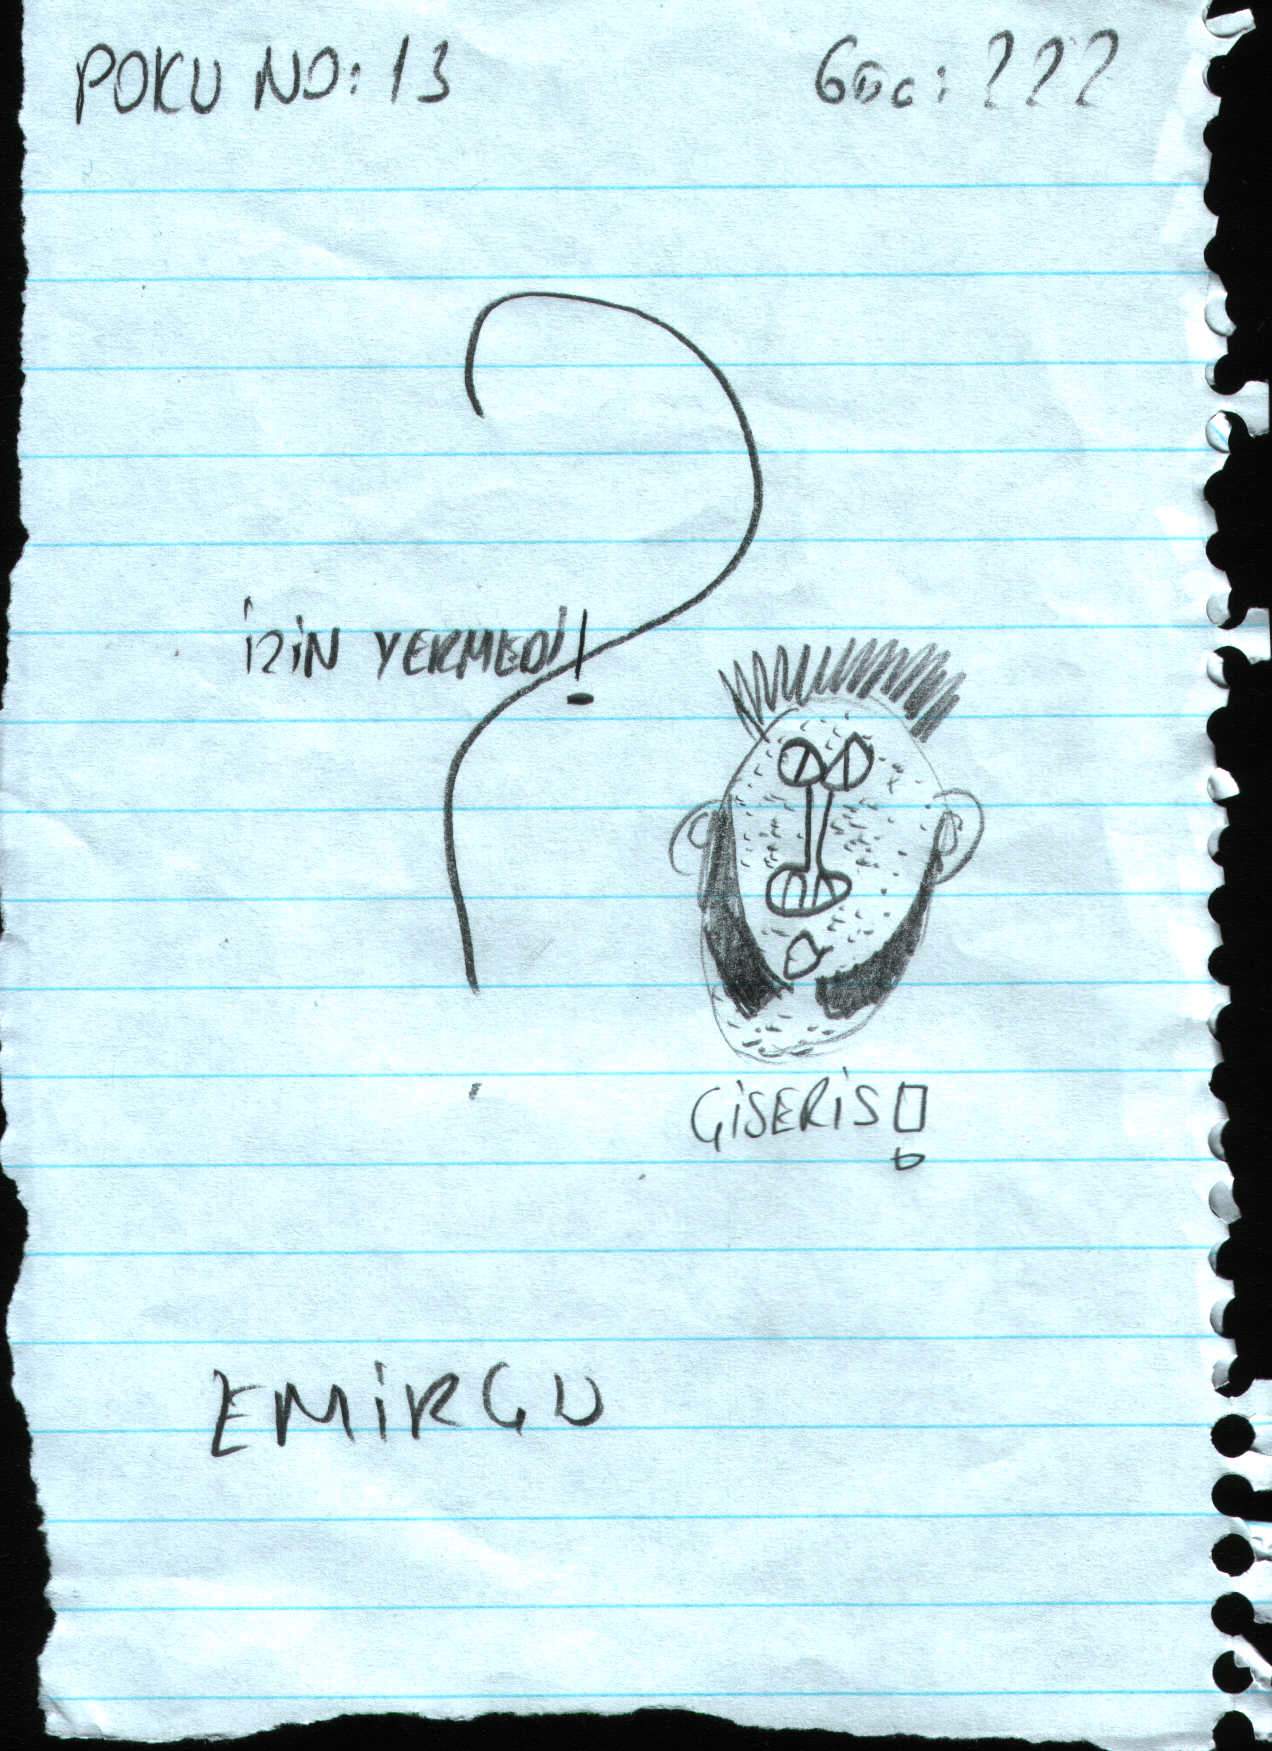 POKU NO: 13
Göc: ???
İZİN VERMEDİ!
GİSERİS!
EMİRGU